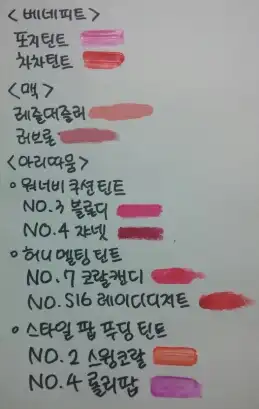 <베네피트>
포지틴트
차차틴트
<맥>
레즐데즐러
러브론
<아리따움>
워너비 쿠션틴트
NO.3 블로디
NO.4 쟈넷
허니 멜팅 틴트
NO.7 코랄캔디
NO.S16 레이디디저트
스타일 팝 푸딩 틴트
NO.2 스윙코랄
NO.4 롤리팝